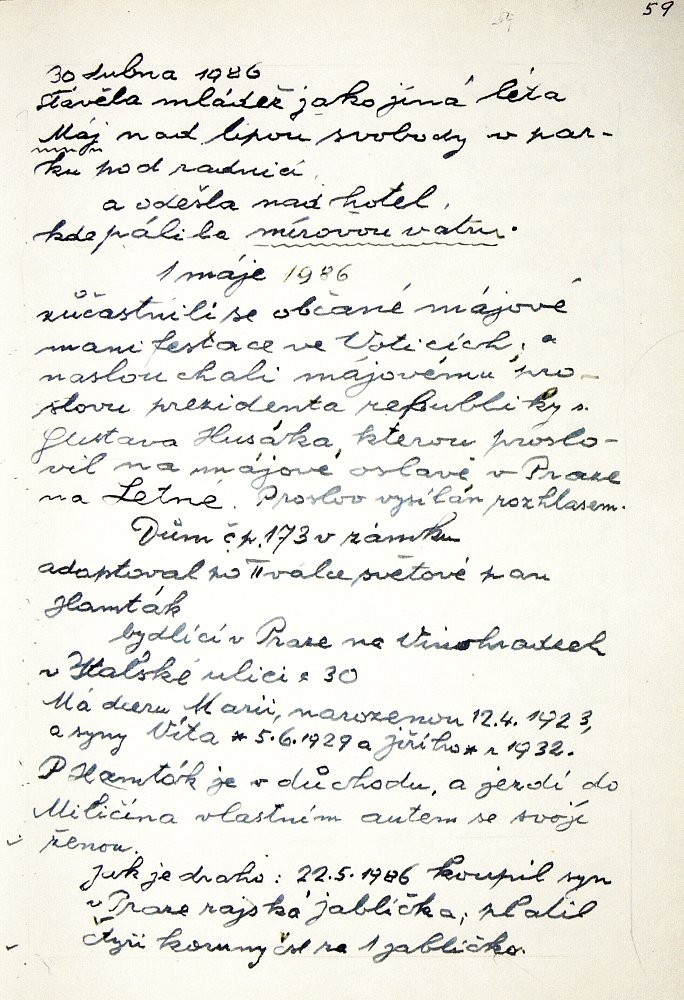 59
30 dubna 1986
stávěla mládež jako jiná léta
Máj nad lipou svobody v par-
ku pod radnicí,
a odešla nad hotel,
kde pálila mírovou vatru.
1 máje 1986
zúčastnili se občané májové
manifestace ve Voticích, a
naslouchali májovému pro-
slovu prezidenta republiky s.
Gustava Husáka, kterou proslo-
vil na májové oslavě v Praze
na Letné. Proslov vysílán rozhlasem.
Dům čp. 173 v zámku
adaptoval po II válce světové pan
Hamták
bydlící v Praze na Vinohradech
v Italské ulici č 30
Má dceru Marii, narozenou 12.4. 1923,
a syny Víta * 5.6.1929 a jiřího * r 1932.
P Hamták je v důchodu, a jezdí do
Miličína vlastním autem se svojí
ženou.
Jak je draho: 22.5.1986 koupil syn
v Praze rajská jablíčka, platil
čtyři koruny čsl za 1 jablíčko.